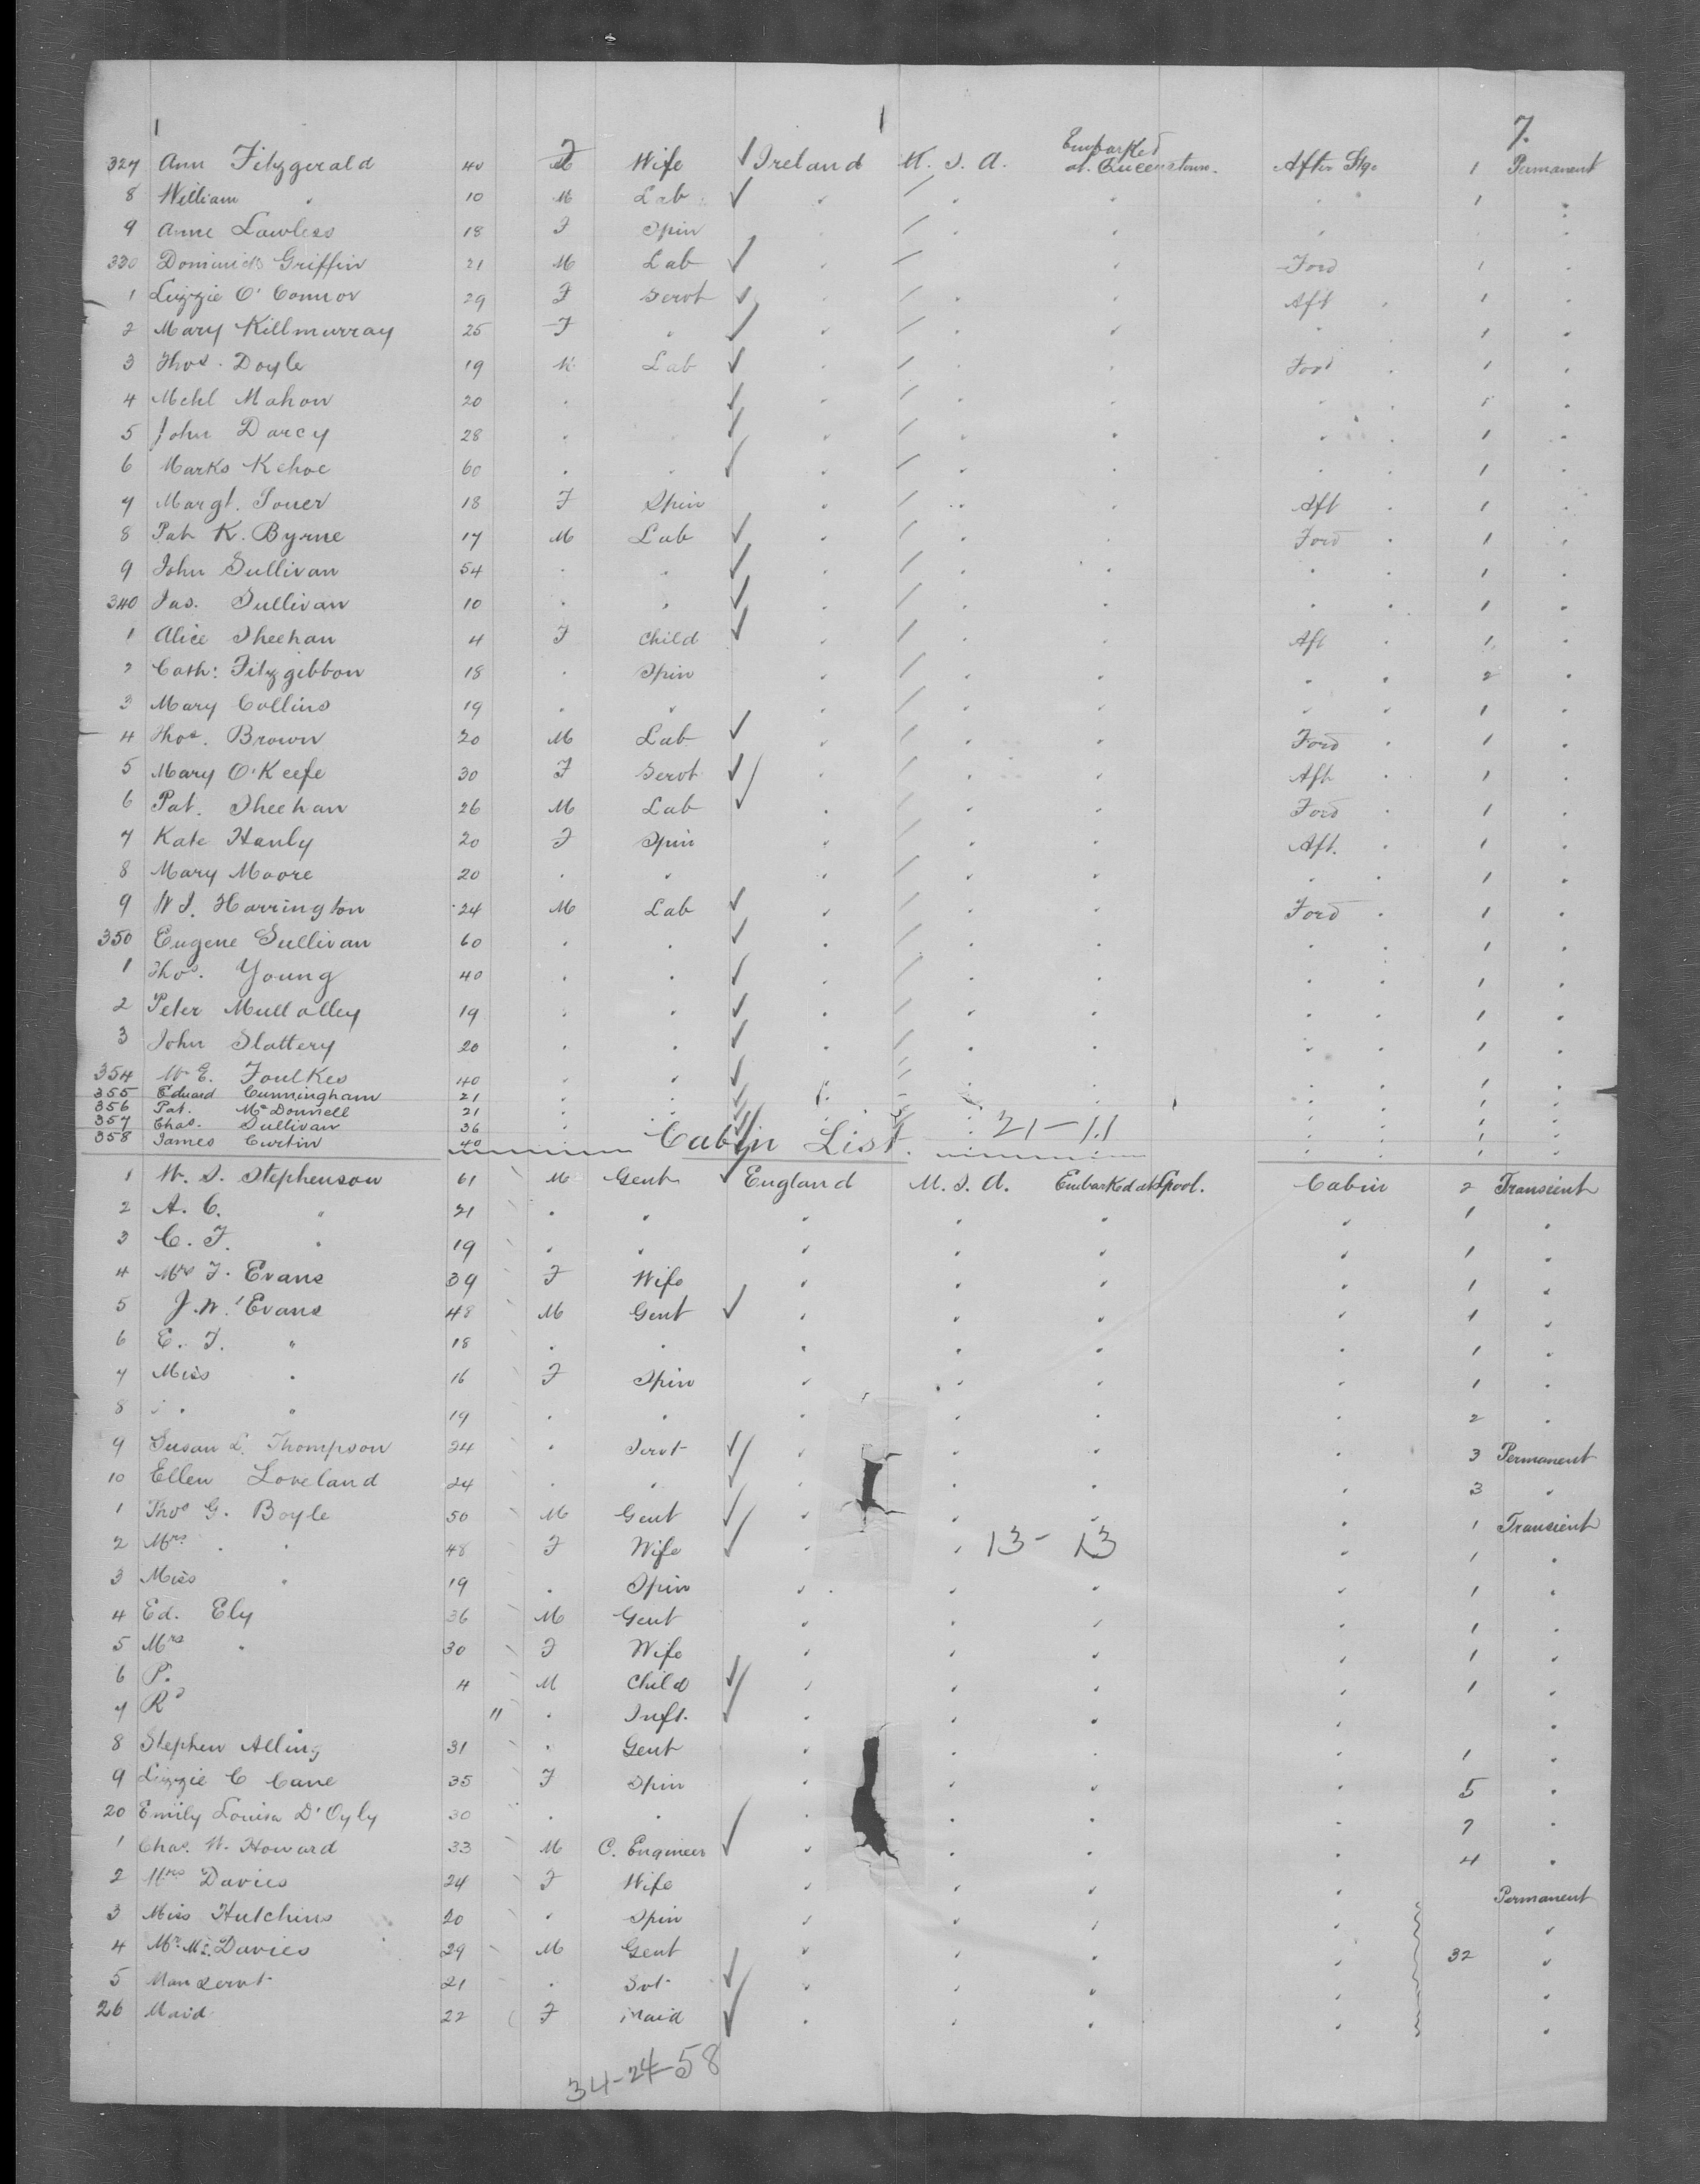 1 1 7.
327 Ann Fitzgerald 40 F Wife Ireland U. S. A. Embarked at Queenstown. After Stge 1 Permanent
8 William " 10 M Lab " " " " " 1 "
9 Anne Lawless 18 F Spin " " " " "
330 Dominick Griffin 21 M Lab " " " " Ford 1 "
1 Lizzie O'Connor 29 F Servt " " " " Aft " 1 "
2 Mary Killmurray 25 F " " " " " " 1 "
3 Thos. Doyle 19 M Lab " " " " Ford " 1 "
4 Mchl Mahon 20 " " " " " " " 1 "
5 John Darcy 28 " " " " " " " 1 "
6 Marks Kehoe 60 " " " " " " " 1 "
7 Margt. 18 F Spin " " " " Aft " 1 "
8 Pat K. Byrne 17 M Lab " " " " Ford " 1 "
9 John Sullivan 54 " " " " " " " 1 "
340 Jas. Sullivan 10 " " " " " " " 1 "
1 Alice Sheehan 4 F Child " " " " Aft " 1 "
2 Cath: Fitzgibbon 18 " Spin " " " " " " 2 "
3 Mary Collins 19 " " " " " " " " 1 "
4 Thos. Brown 20 M Lab " " " " Ford " 1 "
5 Mary O'Keefe 30 F Servt " " " " Aft " 1 "
6 Pat. Sheehan 26 M Lab " " " " Ford " 1 "
7 Kate Hanly 20 F Spin " " " " Aft. " 1 "
8 Mary Moore 20 " " " " " " " " 1 "
9 W J. Harrington 24 M Lab " " " " Ford " 1 "
350 Eugene Sullivan 60 " " " " " " " " 1 "
1 Thos. Young 40 " " " " " " " " 1 "
2 Peter Mullalley 19 " " " " " " " " 1 "
3 John Slattery 20 " " " " " " " " 1 "
354 W E. Foulkes 40 " " " " " " " " 1 "
355 Edward Cunningham 21 " " " " " " " 1 "
356 Pat. McDonnell 21 " " " " " " " 1 "
357 Chas. Sullivan 36 " " " " " " " 1 "
358 James Curtin 40 " " " " 1 "
Cabin List. 21-11
1 W. S. Stephenson 61 M Gent England U. S. A. Embarked at Lpool. Cabin 2 Transient
2 A. C. " 21 " " " " " " 1 "
3 C. F. " 19 " " " " " " 1 "
4 Mrs F. Evans 39 F Wife " " " " 1 "
5 J. W. Evans 48 M Gent " " " " 1 "
6 E. T. " 18 " " " " " " 1 "
7 Miss " 16 F Spin " " " " 1 "
8 " " 19 " " " " " " 2 "
9 Susan L. Thompson 24 " Servt " " " " 3 Permanent
10 Ellen Loveland 24 " " " " " " 3 "
1 Thos G. Boyle 50 M Gent " " " " 1 Transient
2 Mrs " " 48 F Wife " " 13-13 " 1 "
3 Miss " 19 " Spin " " " " 1 "
4 Ed. Ely 36 M Gent " " " " 1 "
5 Mrs " 30 F Wife " " " " 1 "
6 P. 4 M Child " " " " 1 "
7 Rd " " Inft. " " " " "
8 Stephen Alling 31 " Gent " " " " 1 "
9 Lizzie C Cane 35 F Spin " " " " 5 "
20 Emily Louisa D'Oyly 30 " " " " " " 7 "
1 Chas. W. Howard 33 M C. Engineer " " " " 4 "
2 Mrs Davies 24 F Wife " " " " Permanent
3 Miss Hutchins 20 " Spin " " " " "
4 Mr. Davies 29 M Gent " " " " 32 "
5 Manservt 21 " Svt " " " " "
26 Maid 22 F Maid " " " " "
34-24-58